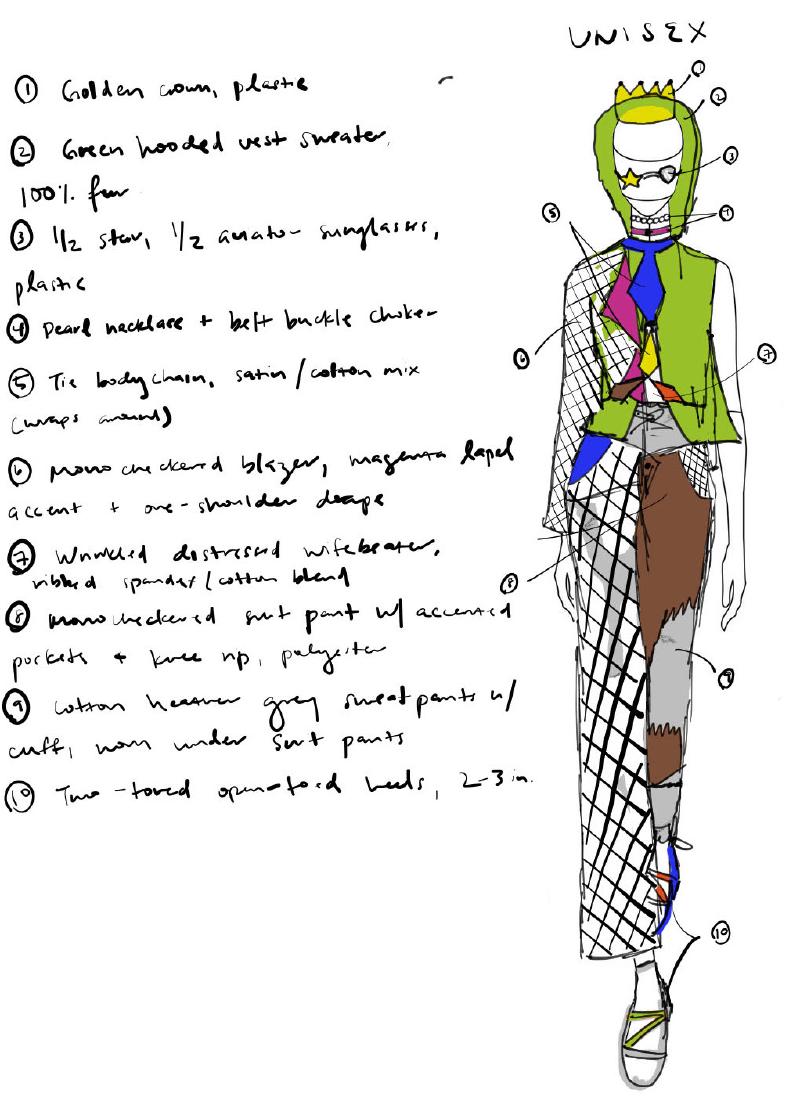 UNISEX
① Golden crown, plastic
② Green hooded vest sweater,
100% fur
③ 1/2 star, 1/2 aviator sunglasses,
plastic
④ Pearl necklace + belt buckle choker
⑤ Tie bodychain, satin/cotton mix
(wraps around)
⑥ mono checkered blazer, magenta lapel
accent + one-shoulder drape
⑦ Wrinkled distressed wifebeater,
ribbed spandex/cotton blend
⑧ monocheckered suit pant w/ accented
pockets + knee rip, polyester
⑨ Cotton heather grey sweatpants w/
cuff, worn under suit pants
⑩ Two-toned open-toed heels, 2-3 in.
①
②
③
④
⑤
⑥
⑦
⑧
⑨
⑩